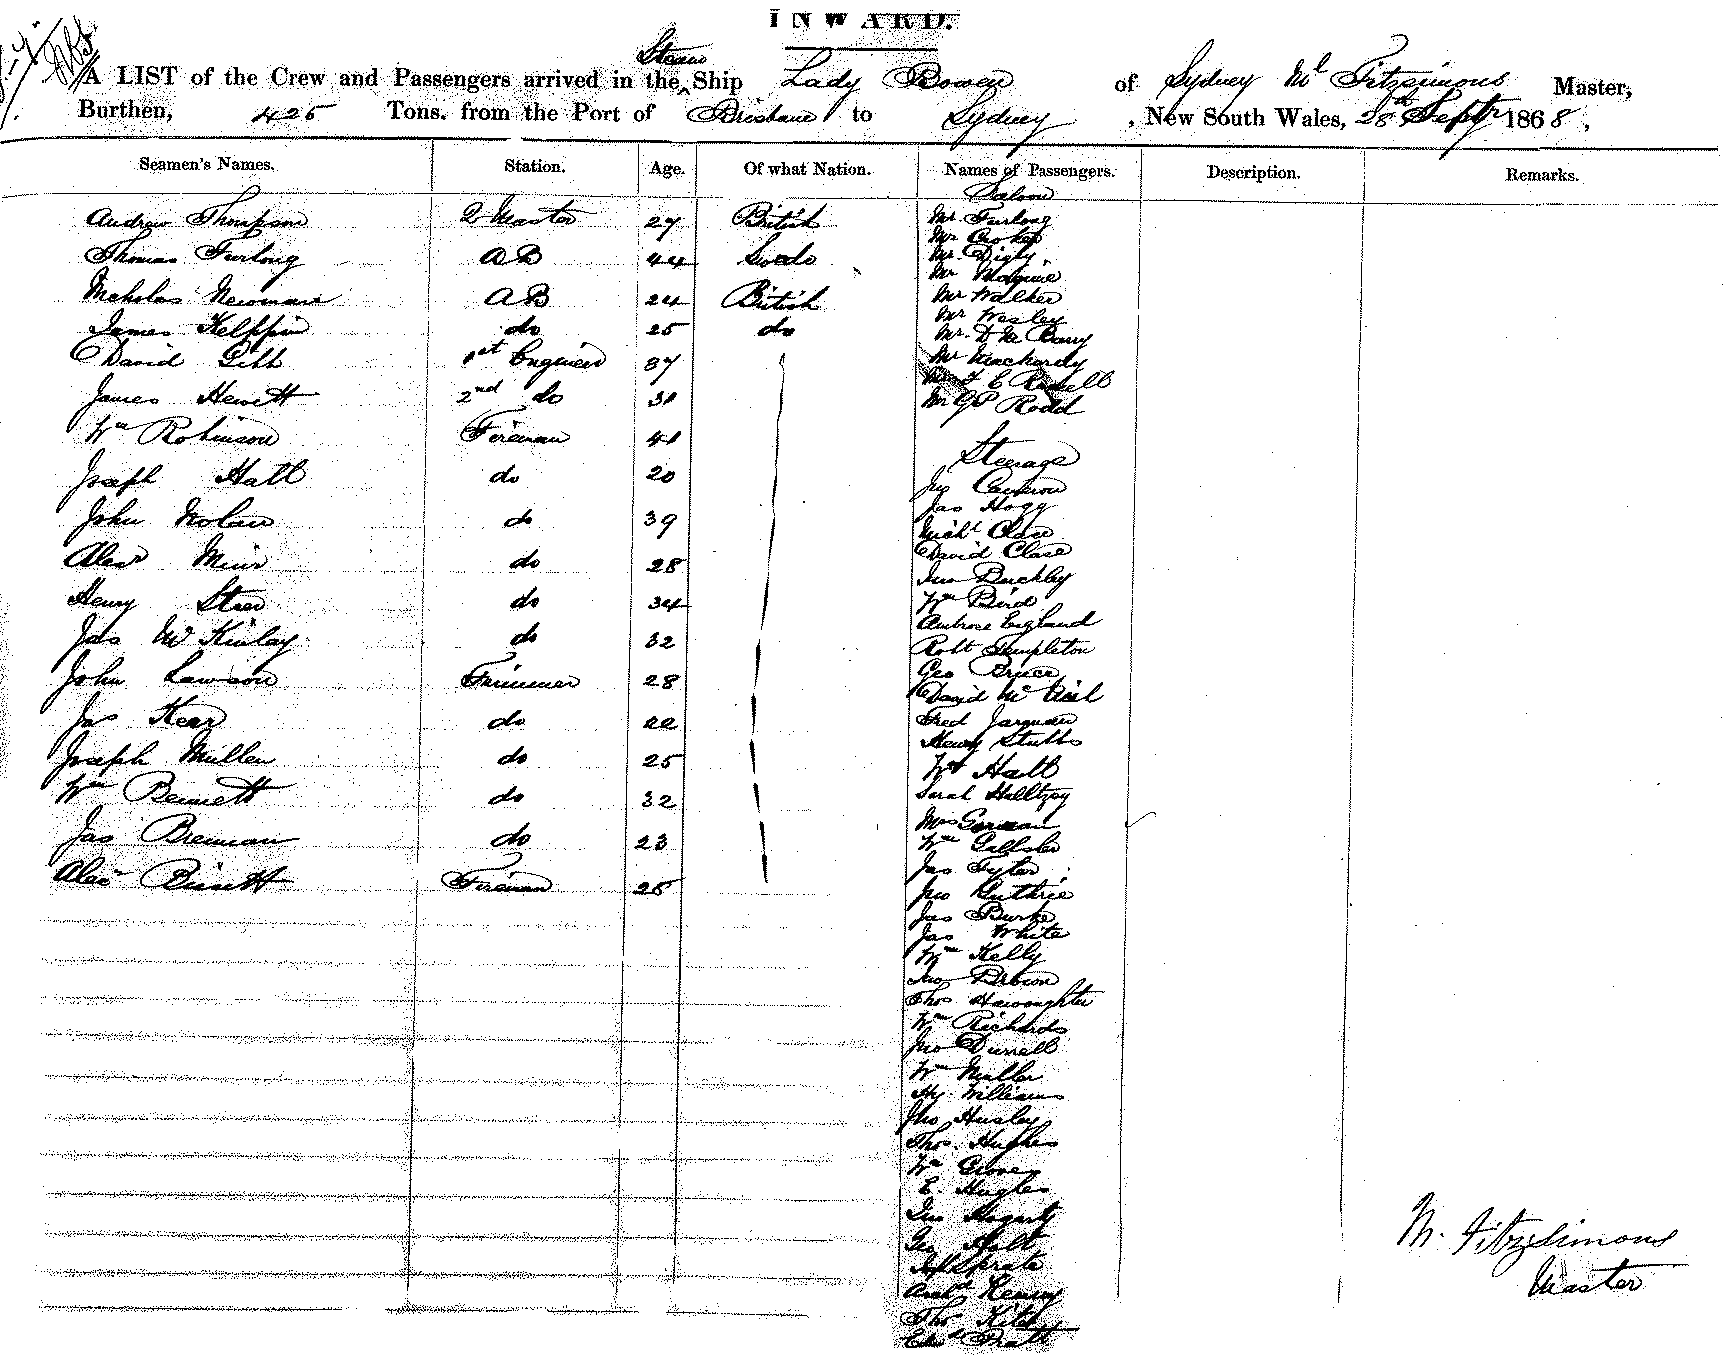 INWARD.
A LIST of the Crew and Passengers arrived in the Steam Ship Lady Bowen of Sydney Ml Fitzsimons Master,
Burthen, 425 Tons. from the Port of Brisbane to Sydney , New South Wales, 28th Septr 1868,
Seamen's Names. Station. Age. Of what Nation. Names of Passengers. Description. Remarks.
Saloon
Andrew Thompson Q Master 27 British Mr Furlong
Mr Crooke
Thomas Furlong AB 44 Mr Digby
Mr
Nicholas Newman AB 24 British Mr Walker
Mr Wesley
James do 25 do Mr D Mc Barry
David Gibb 1st Engineer 37 Mr Machardy
Mr F E Russell
James Hewett 2nd do 31 Mr GP Rodd
Wm Robinson Fireman 41
Steerage
Joseph Hall do 20 Jno Cameron
Jas Hogg
John Nolan do 39 Michl Clase
David Clase
Alexr Muir do 28 Jno Buckley
Henry do 34 Wm Bird
Ambrose England
Jas McKinlay do 32 Robt Templeton
Geo Bruce
John Lawson 28 David Mc
Jas Kear do 22 Fred Jarman
Henry Stubbs
Joseph Mullen do 25 Wm Hall
Wm Bennett do 32 Sarah
Mrs Gorman
Jas Brennan do 23 Wm
Jas Tyler
Alexr Bissett Fireman 25 Jno Guthrie
Jas Burke
Jas White
Wm Kelly
Jno Brown
Thos
Wm Richards
Jno Durrell
Wm Muller
Hy Williams
Jno Husley
Thos Hughes
Wm Groves
E. Hughes
Jno Hogarty
Geo Holt
M. Fitzsimons
Master
Henry
Thos
Pratt